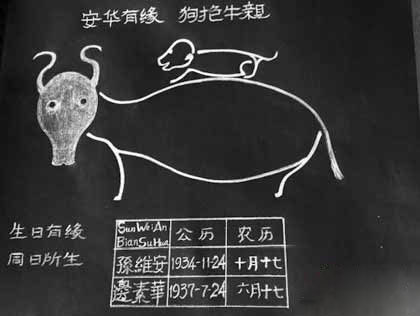 安华有缘 狗抱牛親
生日有缘
同日所生
SunWeiAn BianSuHua 公历 农历
孫維安 1934-11-24 十月十七
邊素華 1937-7-24 六月十七